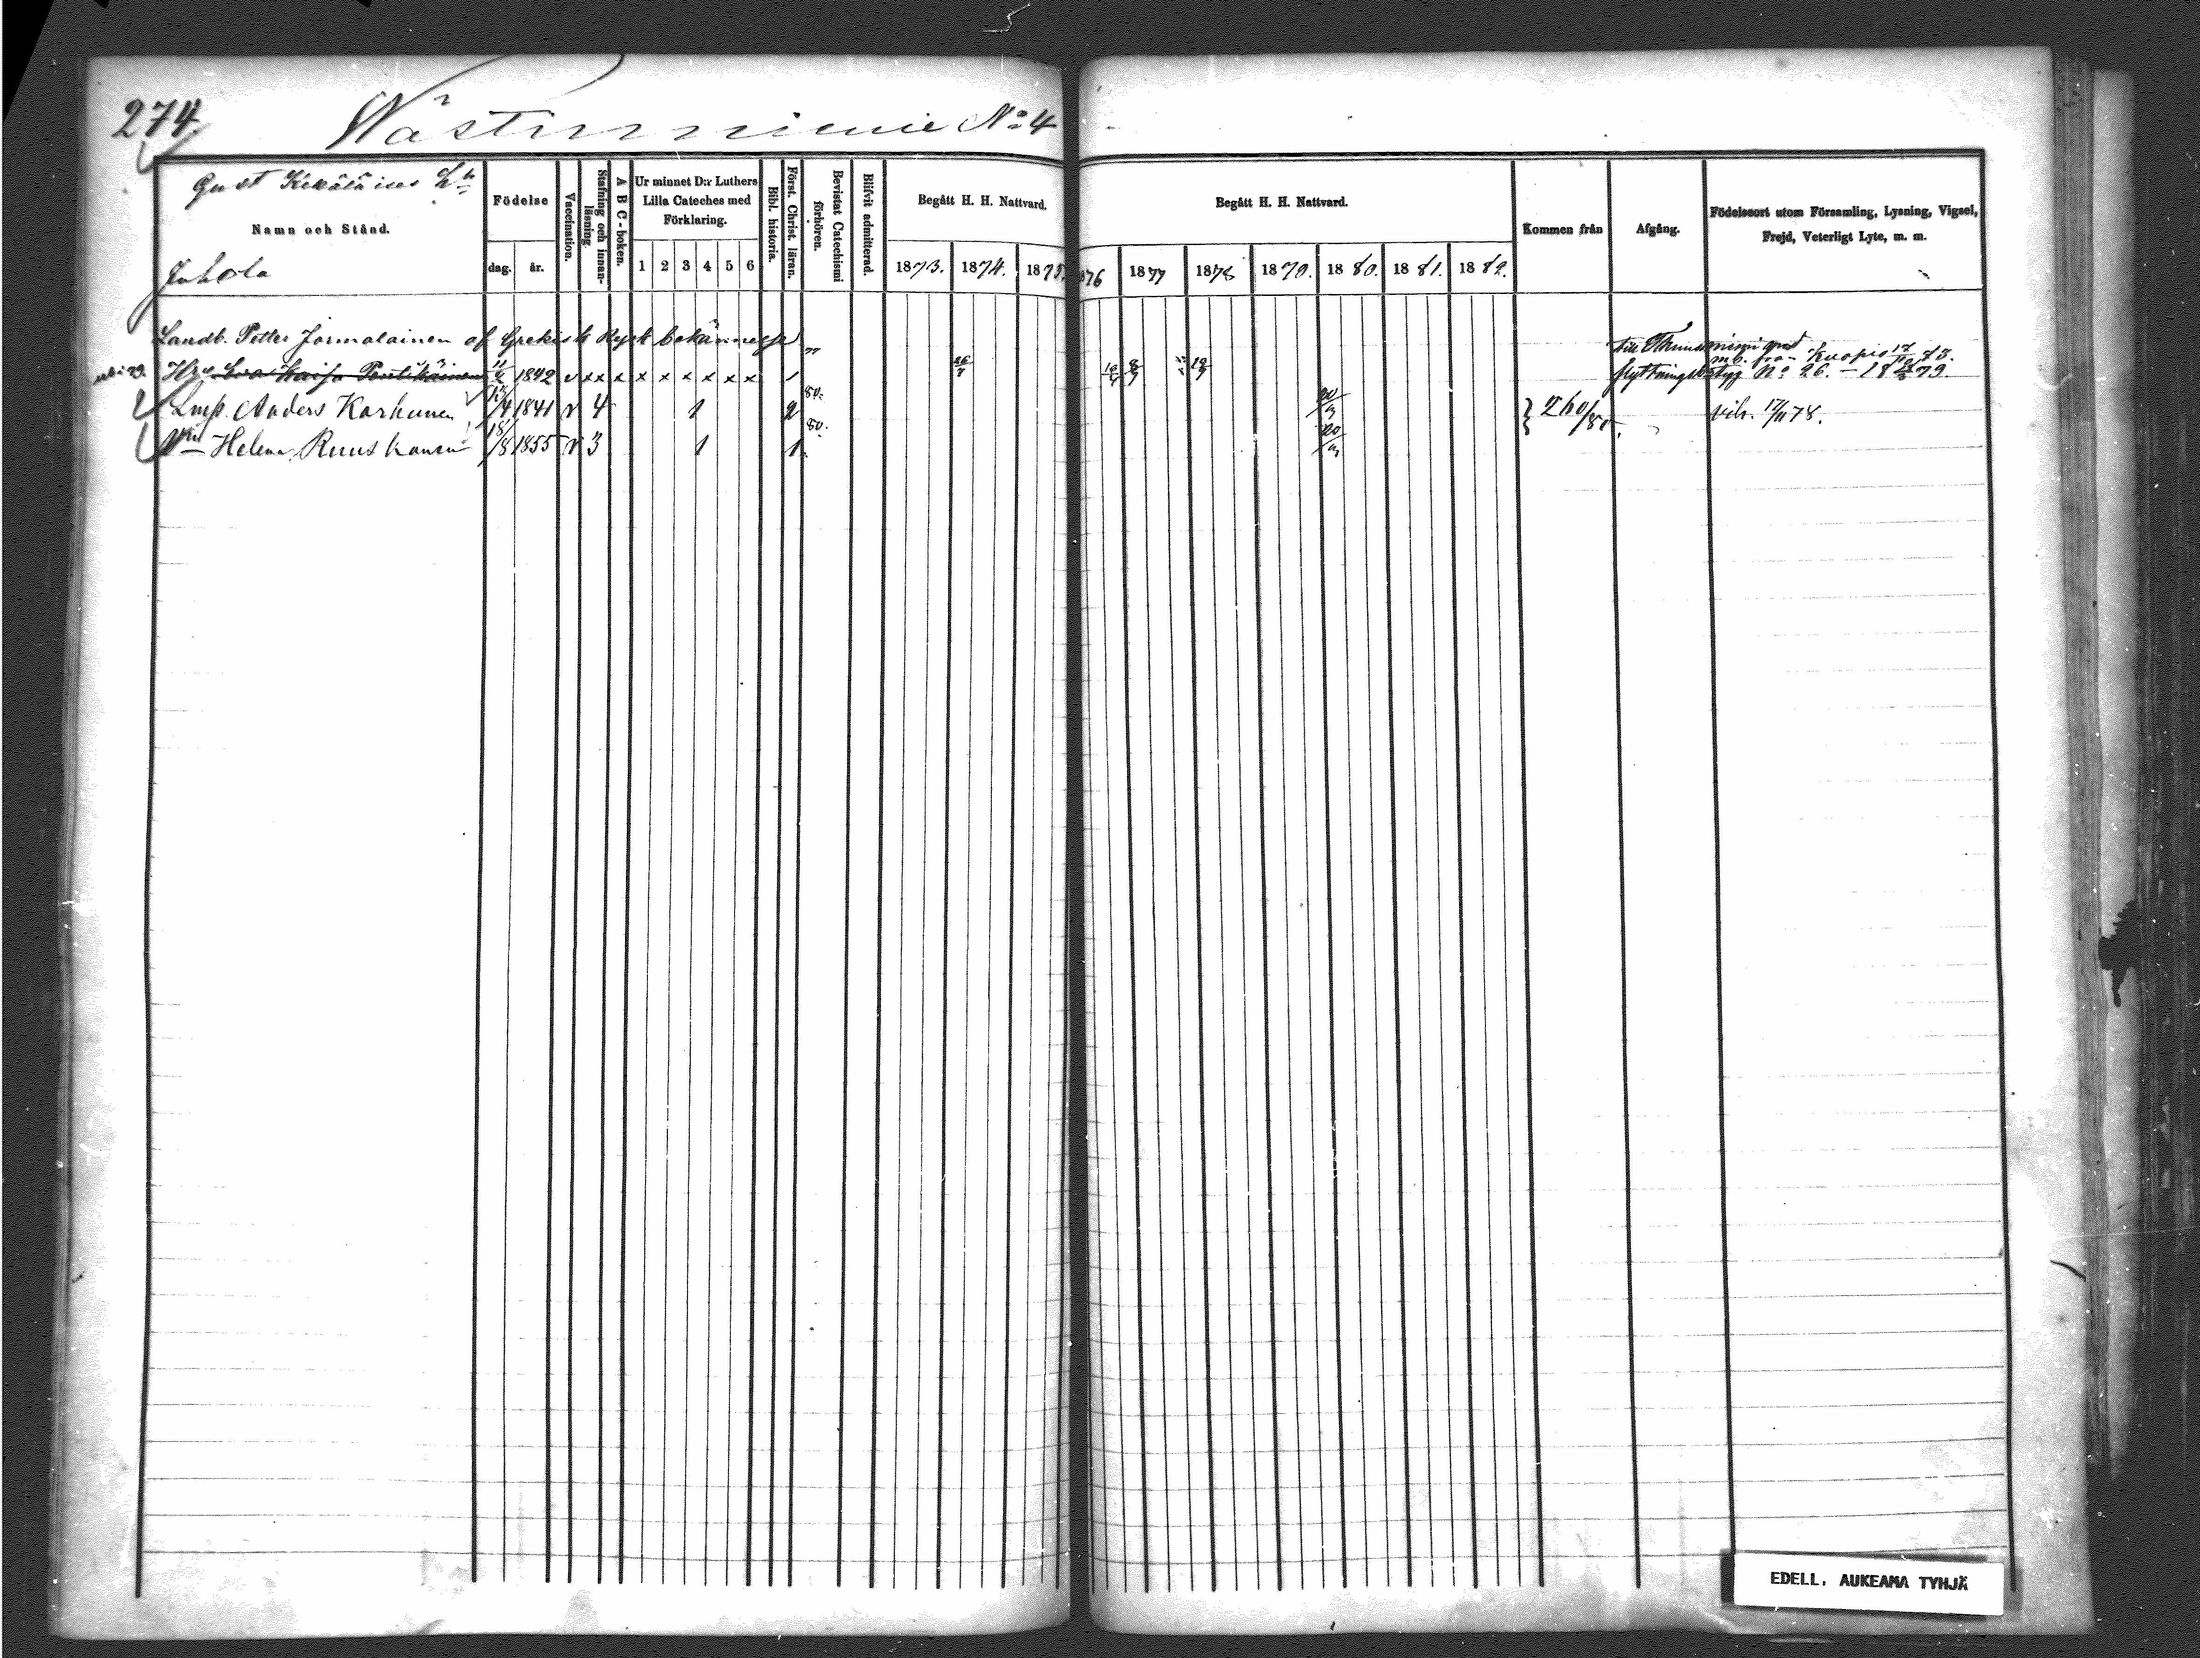 274.
Wästinniemie No 4
Gust Kekäläises Lb
Namn och Stånd.
Juhola
Födelse
dag.
år.
Vaccination.
Stafning och innan-läsning.
A B C-boken.
Ur minnet D:r Luthers
Lilla Cateches med
Förklaring.
1 2 3 4 5 6
Bibl. historia.
Först. Christ. läran.
Bevistat Catechismi förhören.
Blifvit admitterad.
Begått H. H. Nattvard.
1873. 1874. 1875.
Begått H. H. Nattvard.
1876 1877 1878 1879. 1880. 1881. 1882.
Kommen från
Afgång.
Födelseort utom Församling, Lysning, Vigsel,
Frejd, Veterligt Lyte, m. m.
Landb. Petter Jormalainen af Grekisk Rysk bekännelse
till
mb. från Kuopio 73.
Hu Eva Kaisa Pentikäinen 1842 v x x x x x x x x x 1
flyttningsbetyg No 26. 79.
Inhs. Anders Karhunen 1841 v 4 1 2 80. 20/9 260/80. vih. 17/11 78.
Hu Helena Ruuskanen 18/8 1855 v 3 1 1. 80. 20/9
EDELL. AUKEAMA TYHJÄ